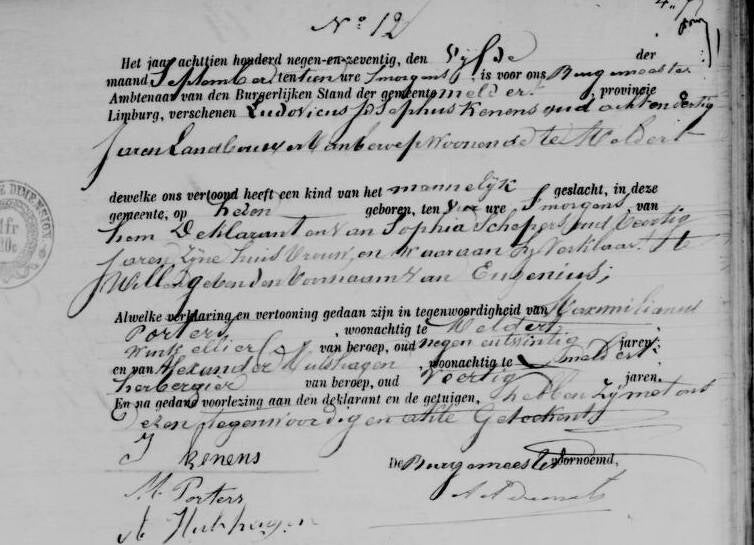 N° 12
Het jaar achttien honderd negen-en-zeventig, den vyfde der
maand September ten tien ure s'morgens, is voor ons Burgemeester
Ambtenaar van den Burgerlijken Stand der gemeente Meldert, provincie
Limburg, verschenen Ludovicus Josephus Kenens oud acht en dertig
jaren Landbouwer van beroep woonende te Meldert
dewelke ons vertoond heeft een kind van het mannelyk geslacht, in deze
gemeente, op heden geboren, ten ure s'morgens van
hem Deklarant en van Sophia Schepers oud veertig
jaren zyne huisvrouw, en waaraan hy verklaart te
willen geven den voornaam van Eugenius;
Alwelke verklaring en vertooning gedaan zijn in tegenwoordigheid van Maximilianus
Porters, woonachtig te Meldert
Winkellier van beroep, oud negen en twintig jaren
en van Alexander Hulshagen, woonachtig te Meldert
herbergier van beroep, oud veertig jaren.
En na gedane voorlezing aan den deklarant en de getuigen, hebben zy met ons
dezen tegenwoordigen akte Geteekent
J Kenens
De Burgemeester voornoemd,
M. Porters
A Hulshagen